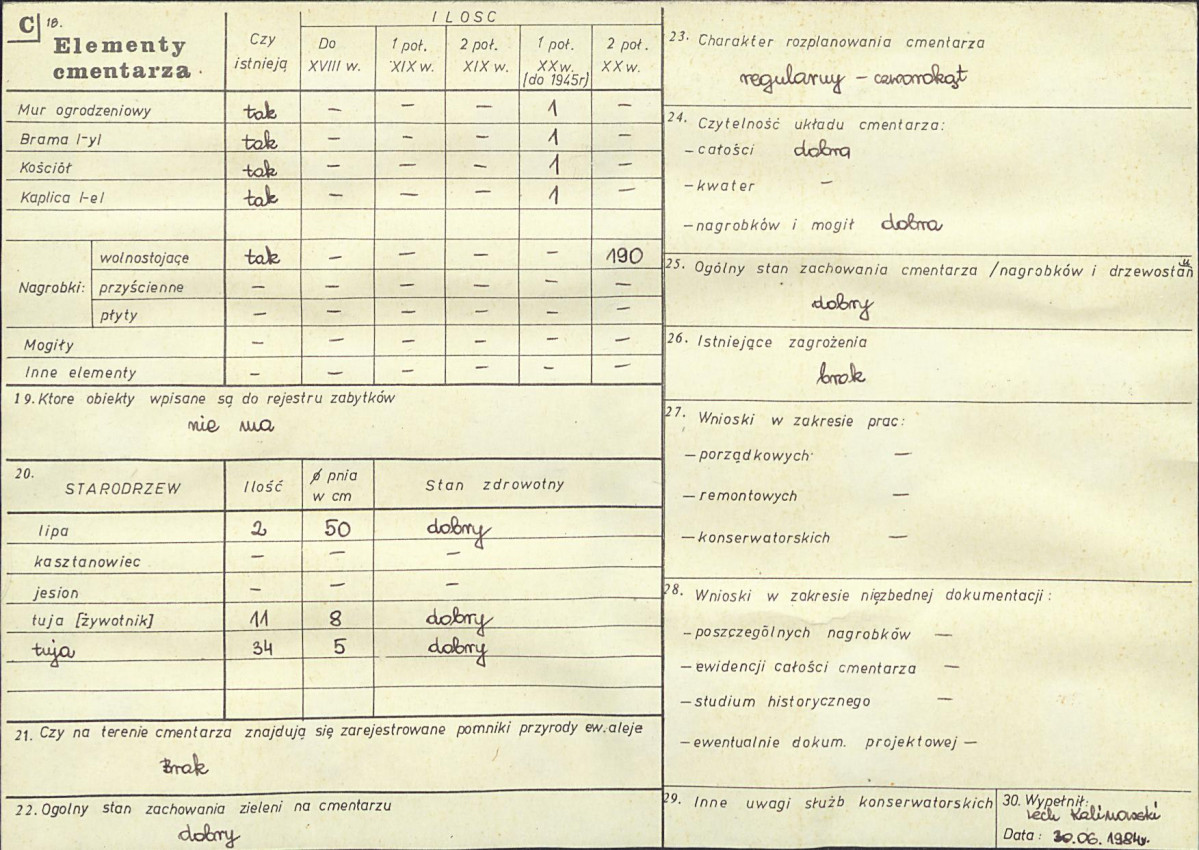 C 18.
Elementy
cmentarza.
Czy
istnieją
ILOSC
Do
XVIII w.
1 poł.
XIX w.
2 poł.
XIX w.
1 poł.
XX w.
(do 1945r)
2 poł.
XX w.
Mur ogrodzeniowy tak – – – 1 –
Brama /-y/ tak – – – 1 –
Kościół tak – – – 1 –
Kaplica /-e/ tak – – – 1 –
Nagrobki:
wolnostojące tak – – – – 190
przyścienne – – – – – –
płyty – – – – – –
Mogiły – – – – – –
Inne elementy – – – – – –
19. Ktore obiekty wpisane są do rejestru zabytków
nie ma
20.
STARODRZEW
Ilość
ø pnia
w cm
Stan zdrowotny
lipa 2 50 dobry
kasztanowiec – – –
jesion – – –
tuja [żywotnik] 11 8 dobry
tuja 34 5 dobry
21. Czy na terenie cmentarza znajdują się zarejestrowane pomniki przyrody ew. aleje
Brak
22. Ogolny stan zachowania zieleni na cmentarzu
dobry
23. Charakter rozplanowania cmentarza
regularny – czworokąt
24. Czytelność układu cmentarza:
– całości dobra
– kwater –
– nagrobków i mogił dobra
25. Ogólny stan zachowania cmentarza /nagrobków i drzewostan
dobry
26. Istniejące zagrożenia
brak
27. Wnioski w zakresie prac:
– porządkowych –
– remontowych –
– konserwatorskich –
28. Wnioski w zakresie nięzbednej dokumentacji:
– poszczególnych nagrobków –
– ewidencji całości cmentarza –
– studium historycznego –
– ewentualnie dokum. projektowej –
29. Inne uwagi służb konserwatorskich
30. Wypełnił:
Lech Kalinowski
Data: 30.06.1984r.